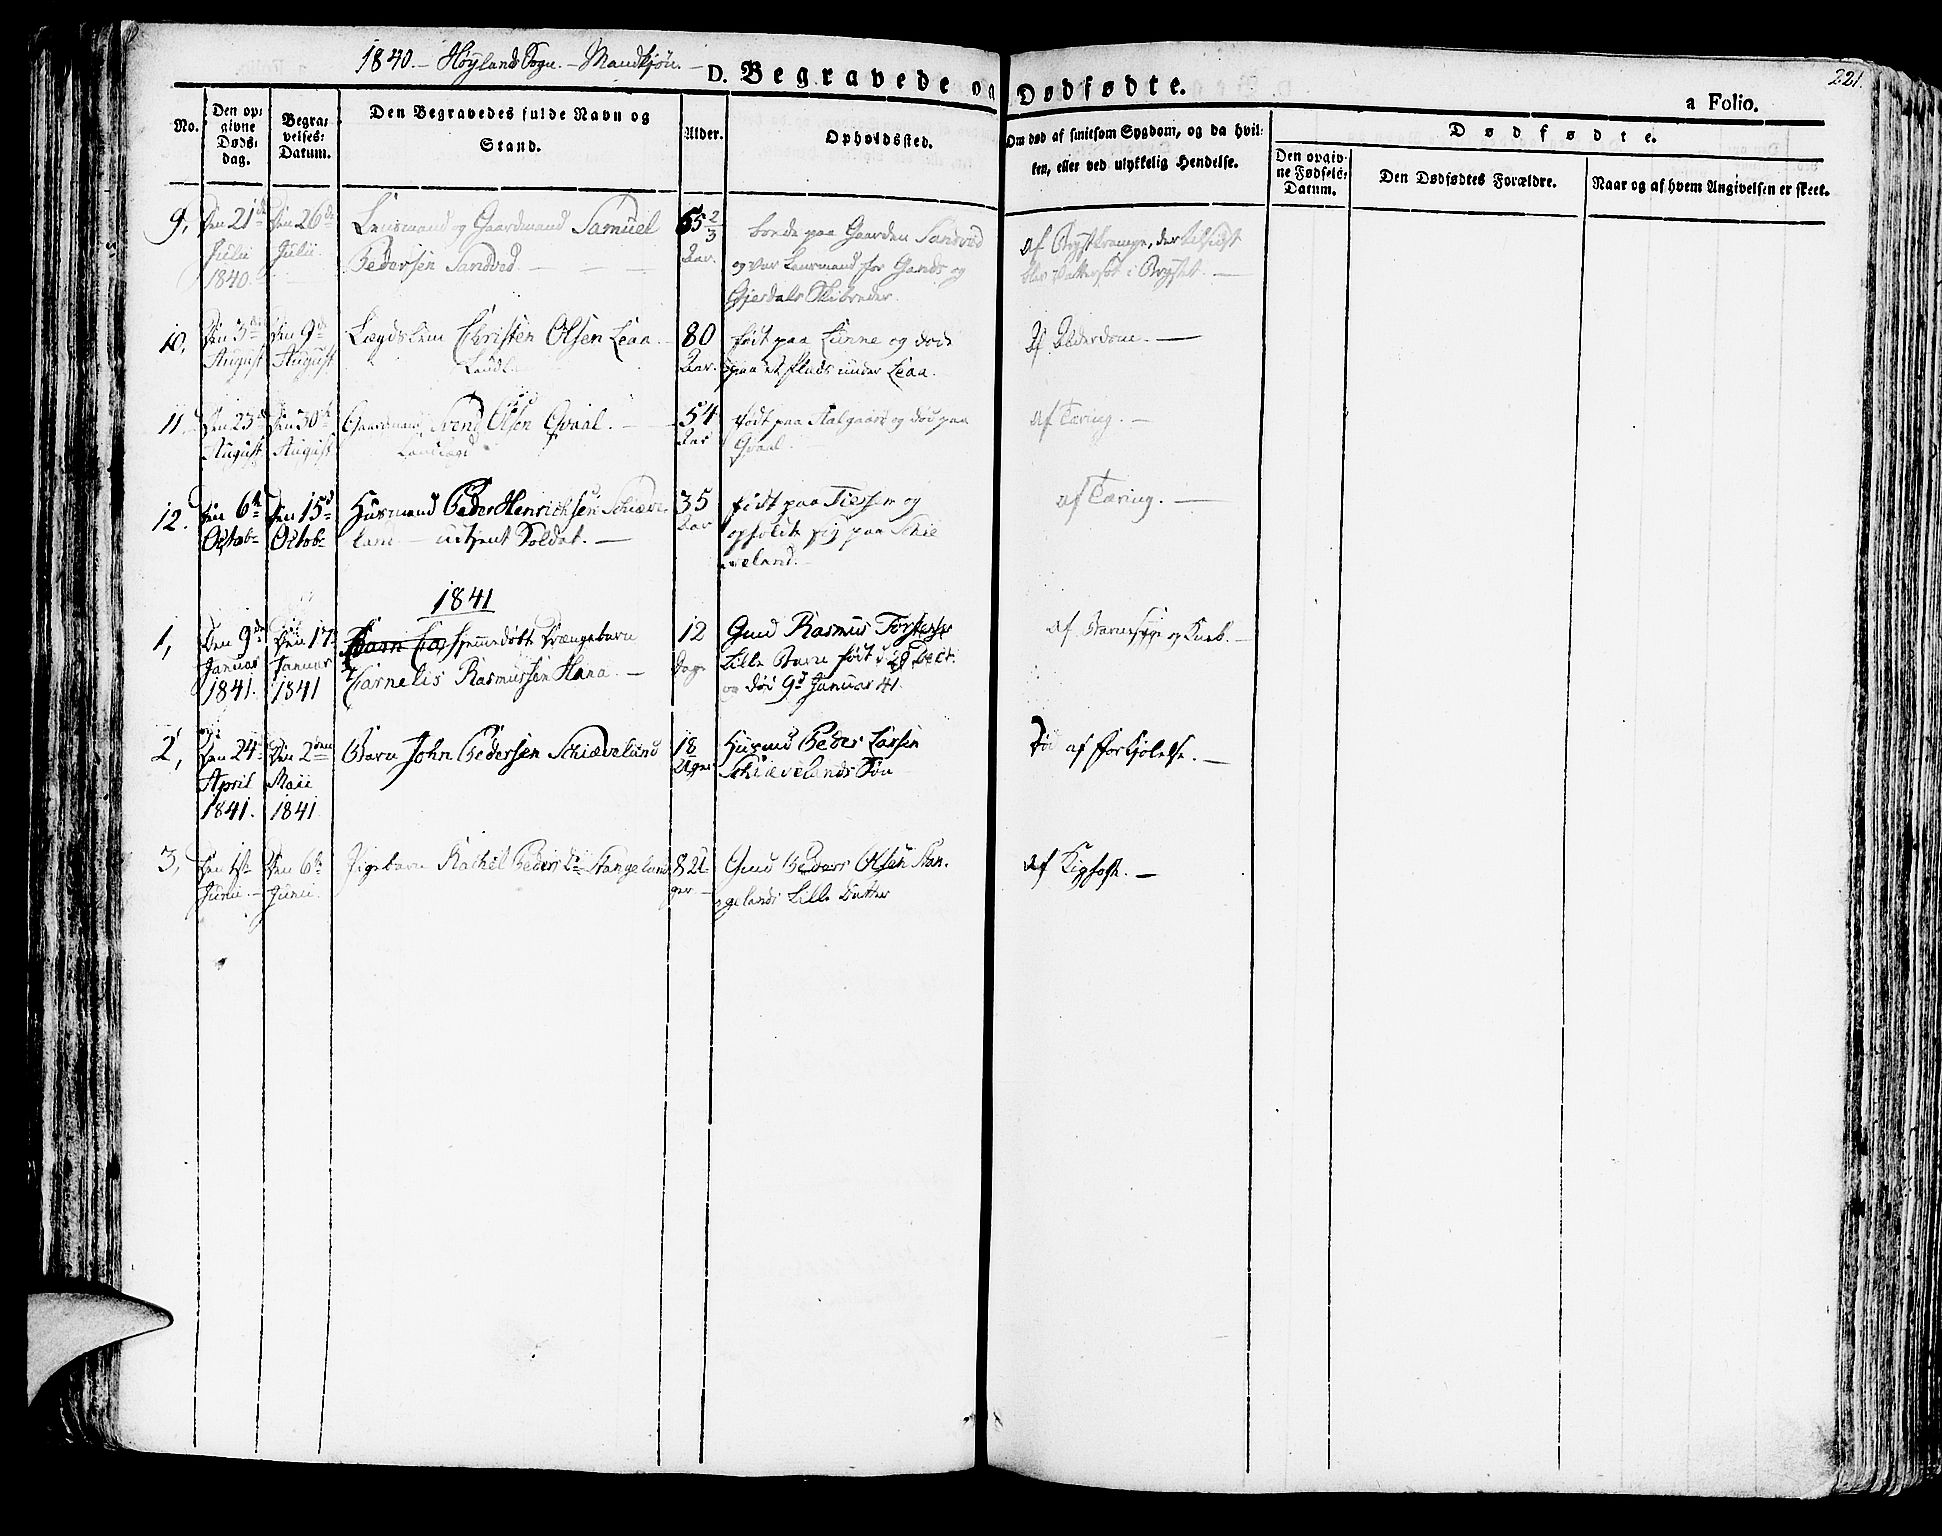 1840. – Høyland Sogn. – Mandkjøn. –
D. Begravede og Dødfødte.
221.
a Folio.
No.
Den op-
givne
Døds-
dag.
Begra-
velses-
Datum.
Den Begravedes fulde Navn og
Stand.
Alder.
Opholdssted.
Om død af smitsom Sygdom, og da hvil-
ken, eller ved ulykkelig Hendelse.
Dødfødte.
Den opgiv-
ne Fødsels-
Datum.
Den Dødfødtes Forældre.
Naar og af hvem Angivelsen er skeet.
9, Den 21de Julii 1840. Den 26de Julii
Lensmand og Gaardmand Samuel
Pedersen Sandved. – – –
65 2/3 Aar.
boede paa Gaarden Sandved
og var Lensmand for Gands og
Gjesdals Skibreder.
af Brystkrampe, der tilsidst
blev Vattersot i Brystet. –
10, Den 3die August Den 9de August
Lægdslem Christen Olsen Leaa.
80 Aar.
født paa Lunne og døde
paa et Plads under Leaa.
Af Alderdom. –
11. Den 23de August Den 30te August
Gaardmand Svend Olsen Qvaal. –
54 Aar
født paa Aalgaard og død paa
Qvaal.
af Tæring. –
12. Den 6te Octobr Den 15de Octobr
Husmand Peder Henrichsen Schiæve-
land – udtjent Soldat. –
35 Aar
født paa
og opholdt sig paa Schie
væland.
af Tæring. –
1841
1, Den 9de Januar 1841. Den 17de Januar 1841
Drængebarn
Carnelis Rasmussen Hana. –
12 Dage
Gmd Rasmus
Lille Barn født d 28 Dect.
og død 9d Januar 41.
af Barnesyge og –
2, Den 24de April 1841. Den 2den Maii 1841
Barn John Pedersen Schiævelund
18 Uger
Husmd Peder Larsen
Schiævelands Søn
Død af Forkjølelse. –
3, Den 1ste Junii – Den 6te Junii
Pigebarn Rachel Peders Dr Stangeland
8 U-
ger –
Gmd Peders Olsen Stan-
gelands Lille Datter
af Kighoste. –